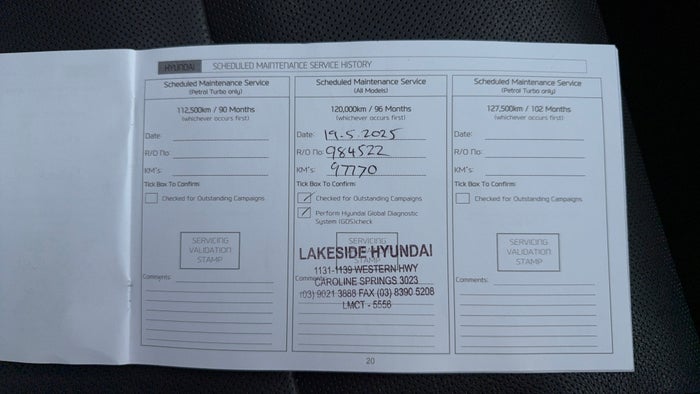 HYUNDAI SCHEDULED MAINTENANCE SERVICE HISTORY
Scheduled Maintenance Service
(Petrol Turbo only)
112,500km / 90 Months
(whichever occurs first)
Date:
R/O No:
KM's:
Tick Box To Confirm:
Checked for Outstanding Campaigns
SERVICING
VALIDATION
STAMP
Comments:
Scheduled Maintenance Service
(All Models)
120,000km / 96 Months
(whichever occurs first)
Date: 19.5.2025
R/O No: 984522
KM's: 97170
Tick Box To Confirm:
Checked for Outstanding Campaigns
Perform Hyundai Global Diagnostic
System (GDS)check
SERVICING
VALIDATION
STAMP
LAKESIDE HYUNDAI
1131-1139 WESTERN HWY
CAROLINE SPRINGS 3023
(03) 9021 3888 FAX (03) 8390 5208
LMCT - 5558
Comments:
Scheduled Maintenance Service
(Petrol Turbo only)
127,500km / 102 Months
(whichever occurs first)
Date:
R/O No:
KM's:
Tick Box To Confirm:
Checked for Outstanding Campaigns
SERVICING
VALIDATION
STAMP
Comments:
20